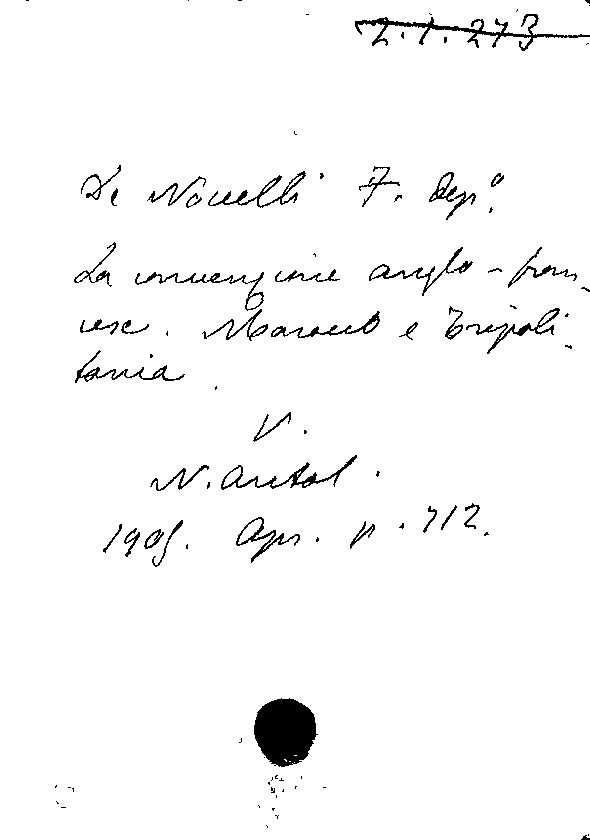 2.1.273
De Novelli F. Dep.º
La convenzione anglo-fran-
cese. Marocco e Tripoli-
tania.
V.
N. Antol.
1905. Apr. p. 712.